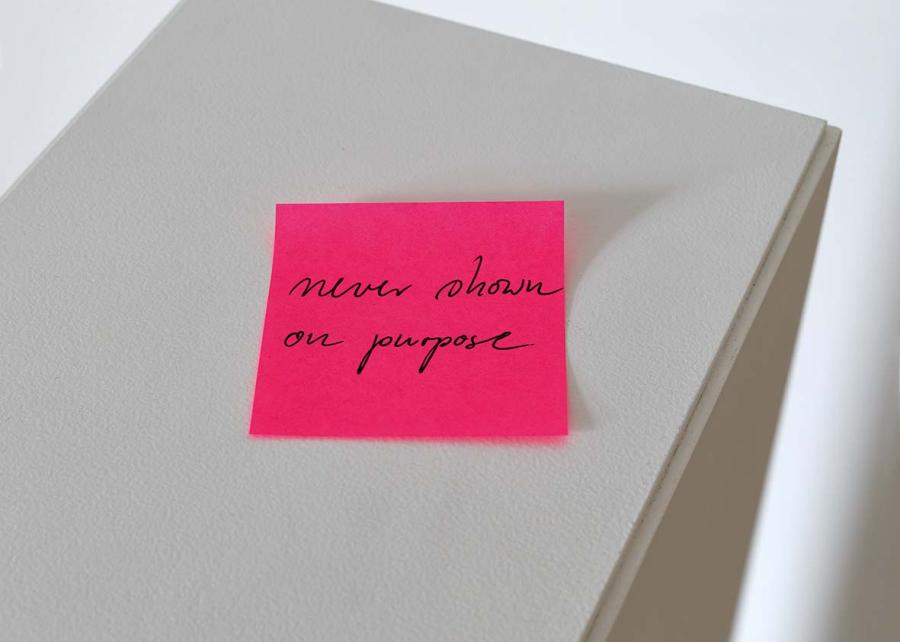 never shown
on purpose